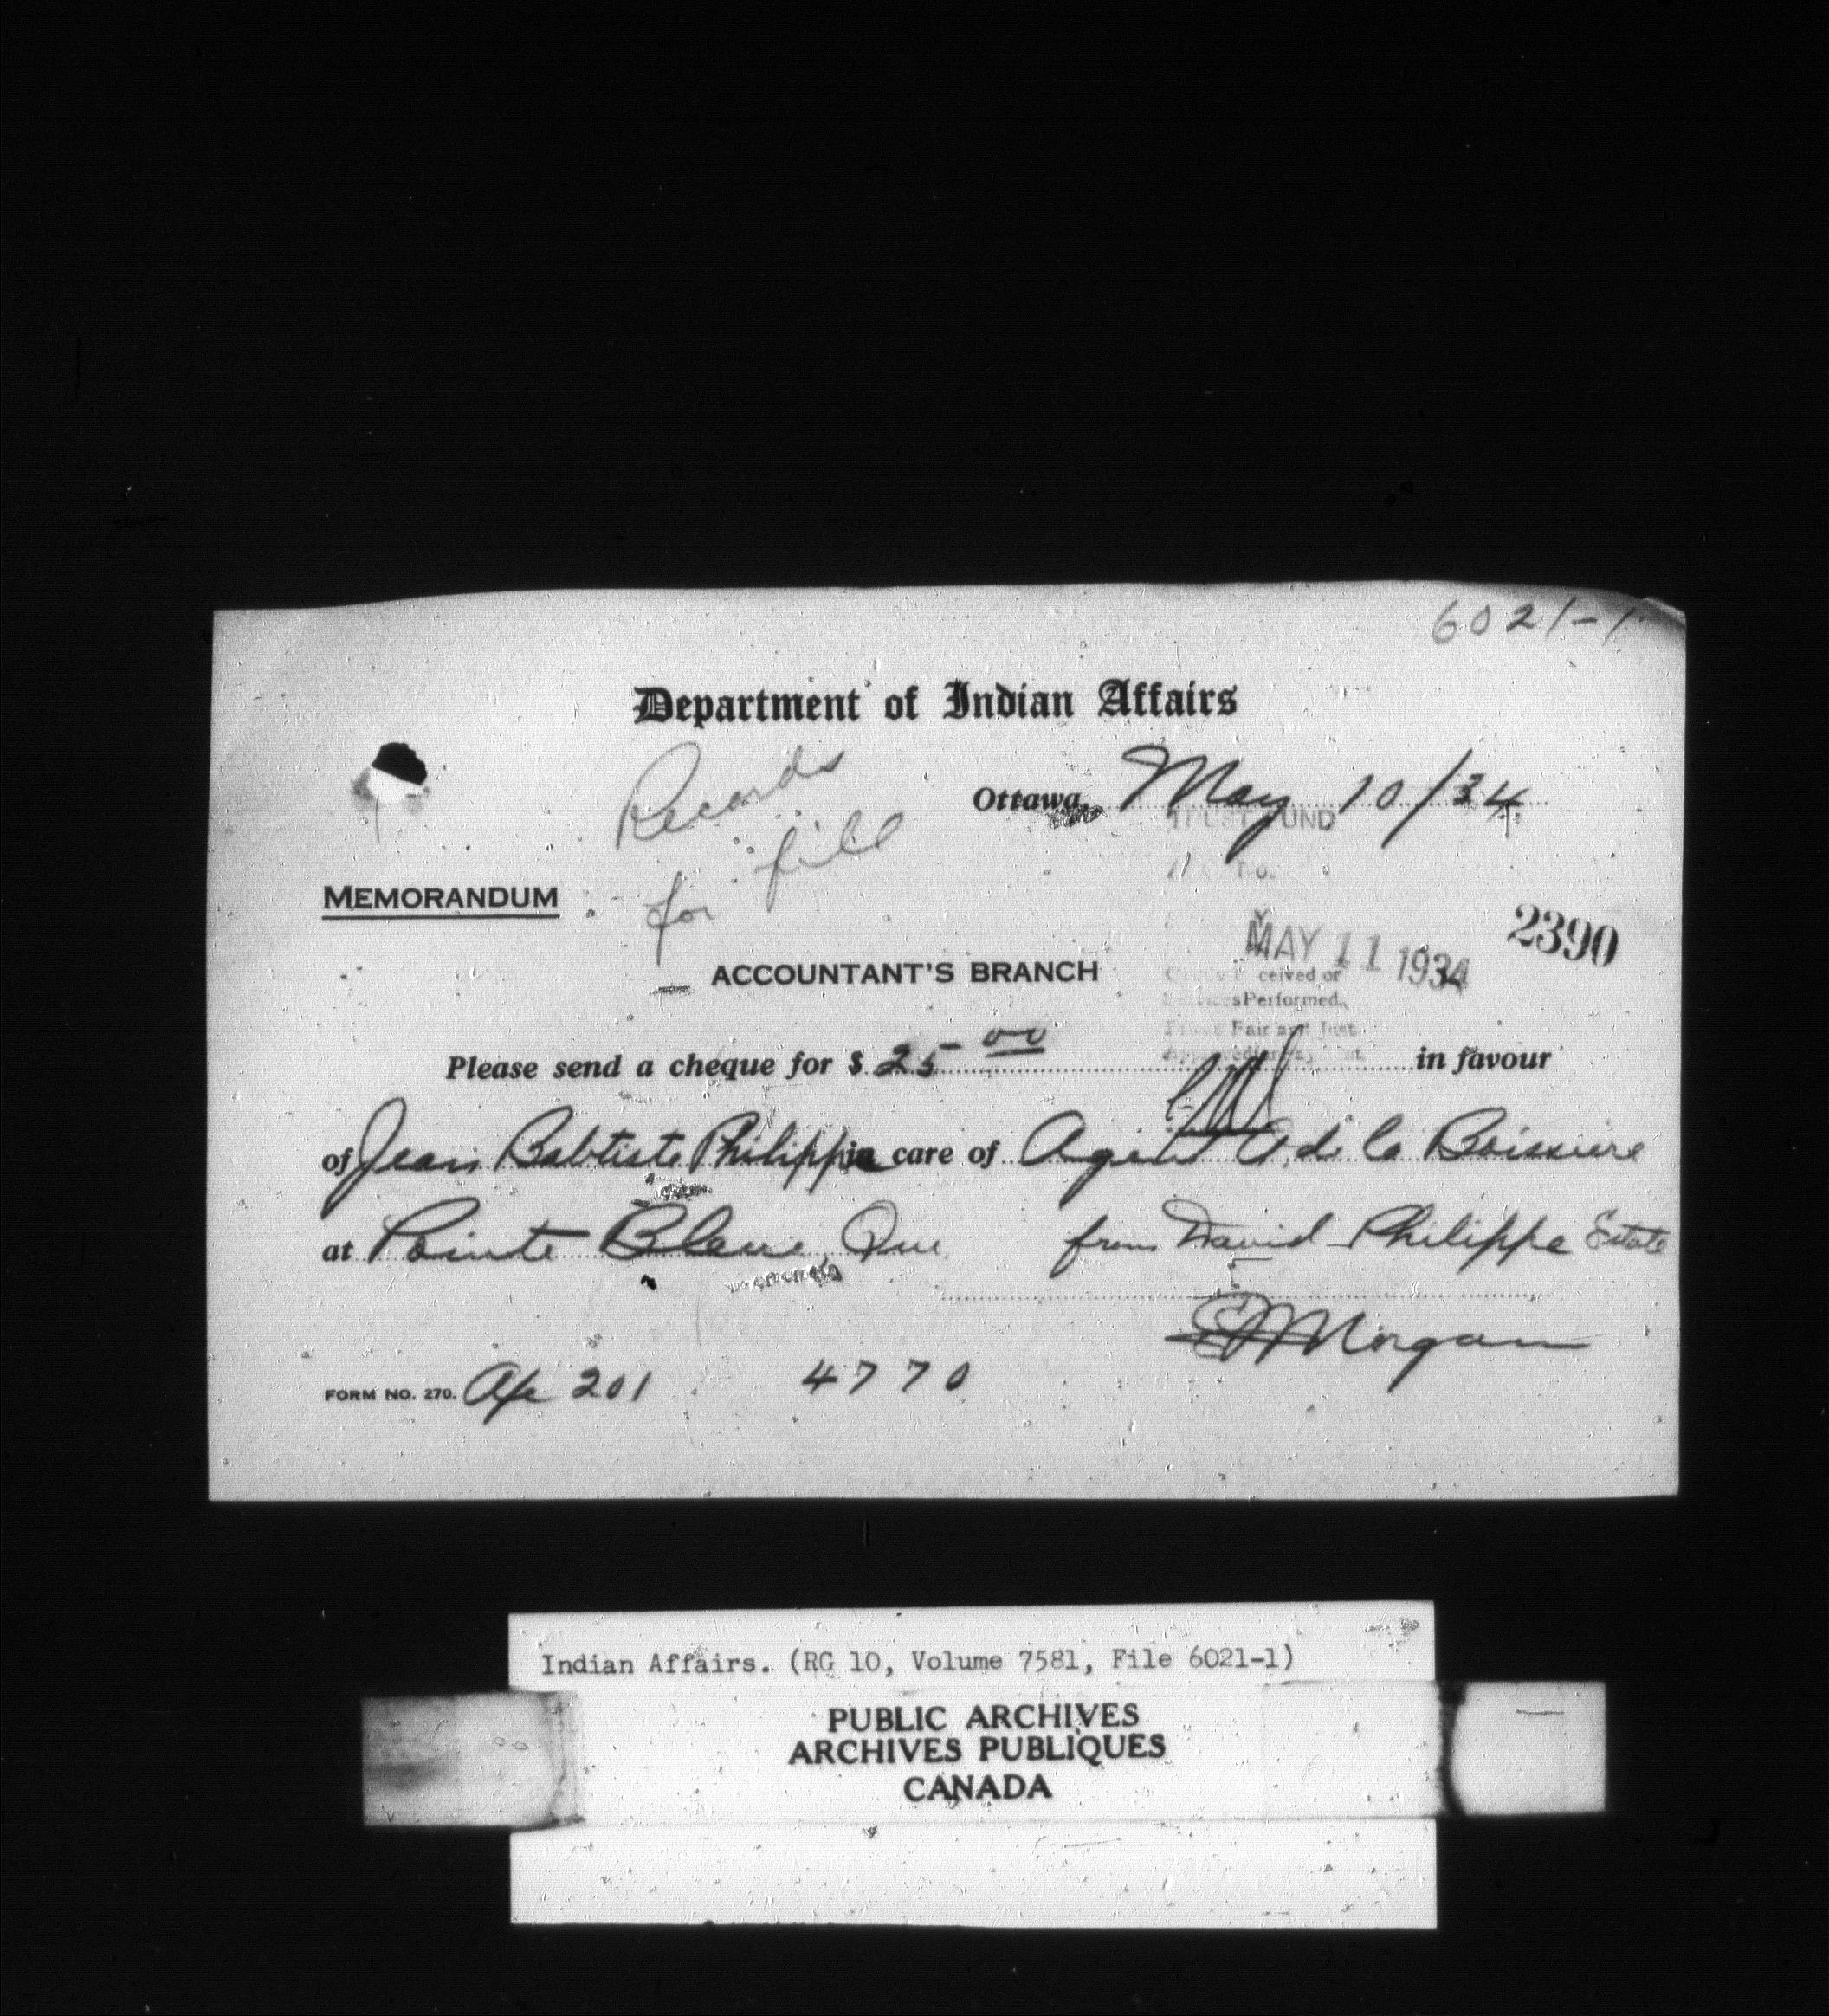 6021-1
Department of Indian Affairs
Records
for file
Ottawa, May 10/34
TRUST FUND
No.
MEMORANDUM
MAY 11 1934
2390
ACCOUNTANT'S BRANCH
ceived or
Performed,
Fair and Just
Please send a cheque for $ 25 00 in favour
of Jean Babtiste Philippe in care of Agent A. de la Boissiere
at Pointe Bleue, Que from David Philippe Estate
Morgan
FORM NO. 270. 201 4770
Indian Affairs. (RG 10, Volume 7581, File 6021-1)
PUBLIC ARCHIVES
ARCHIVES PUBLIQUES
CANADA